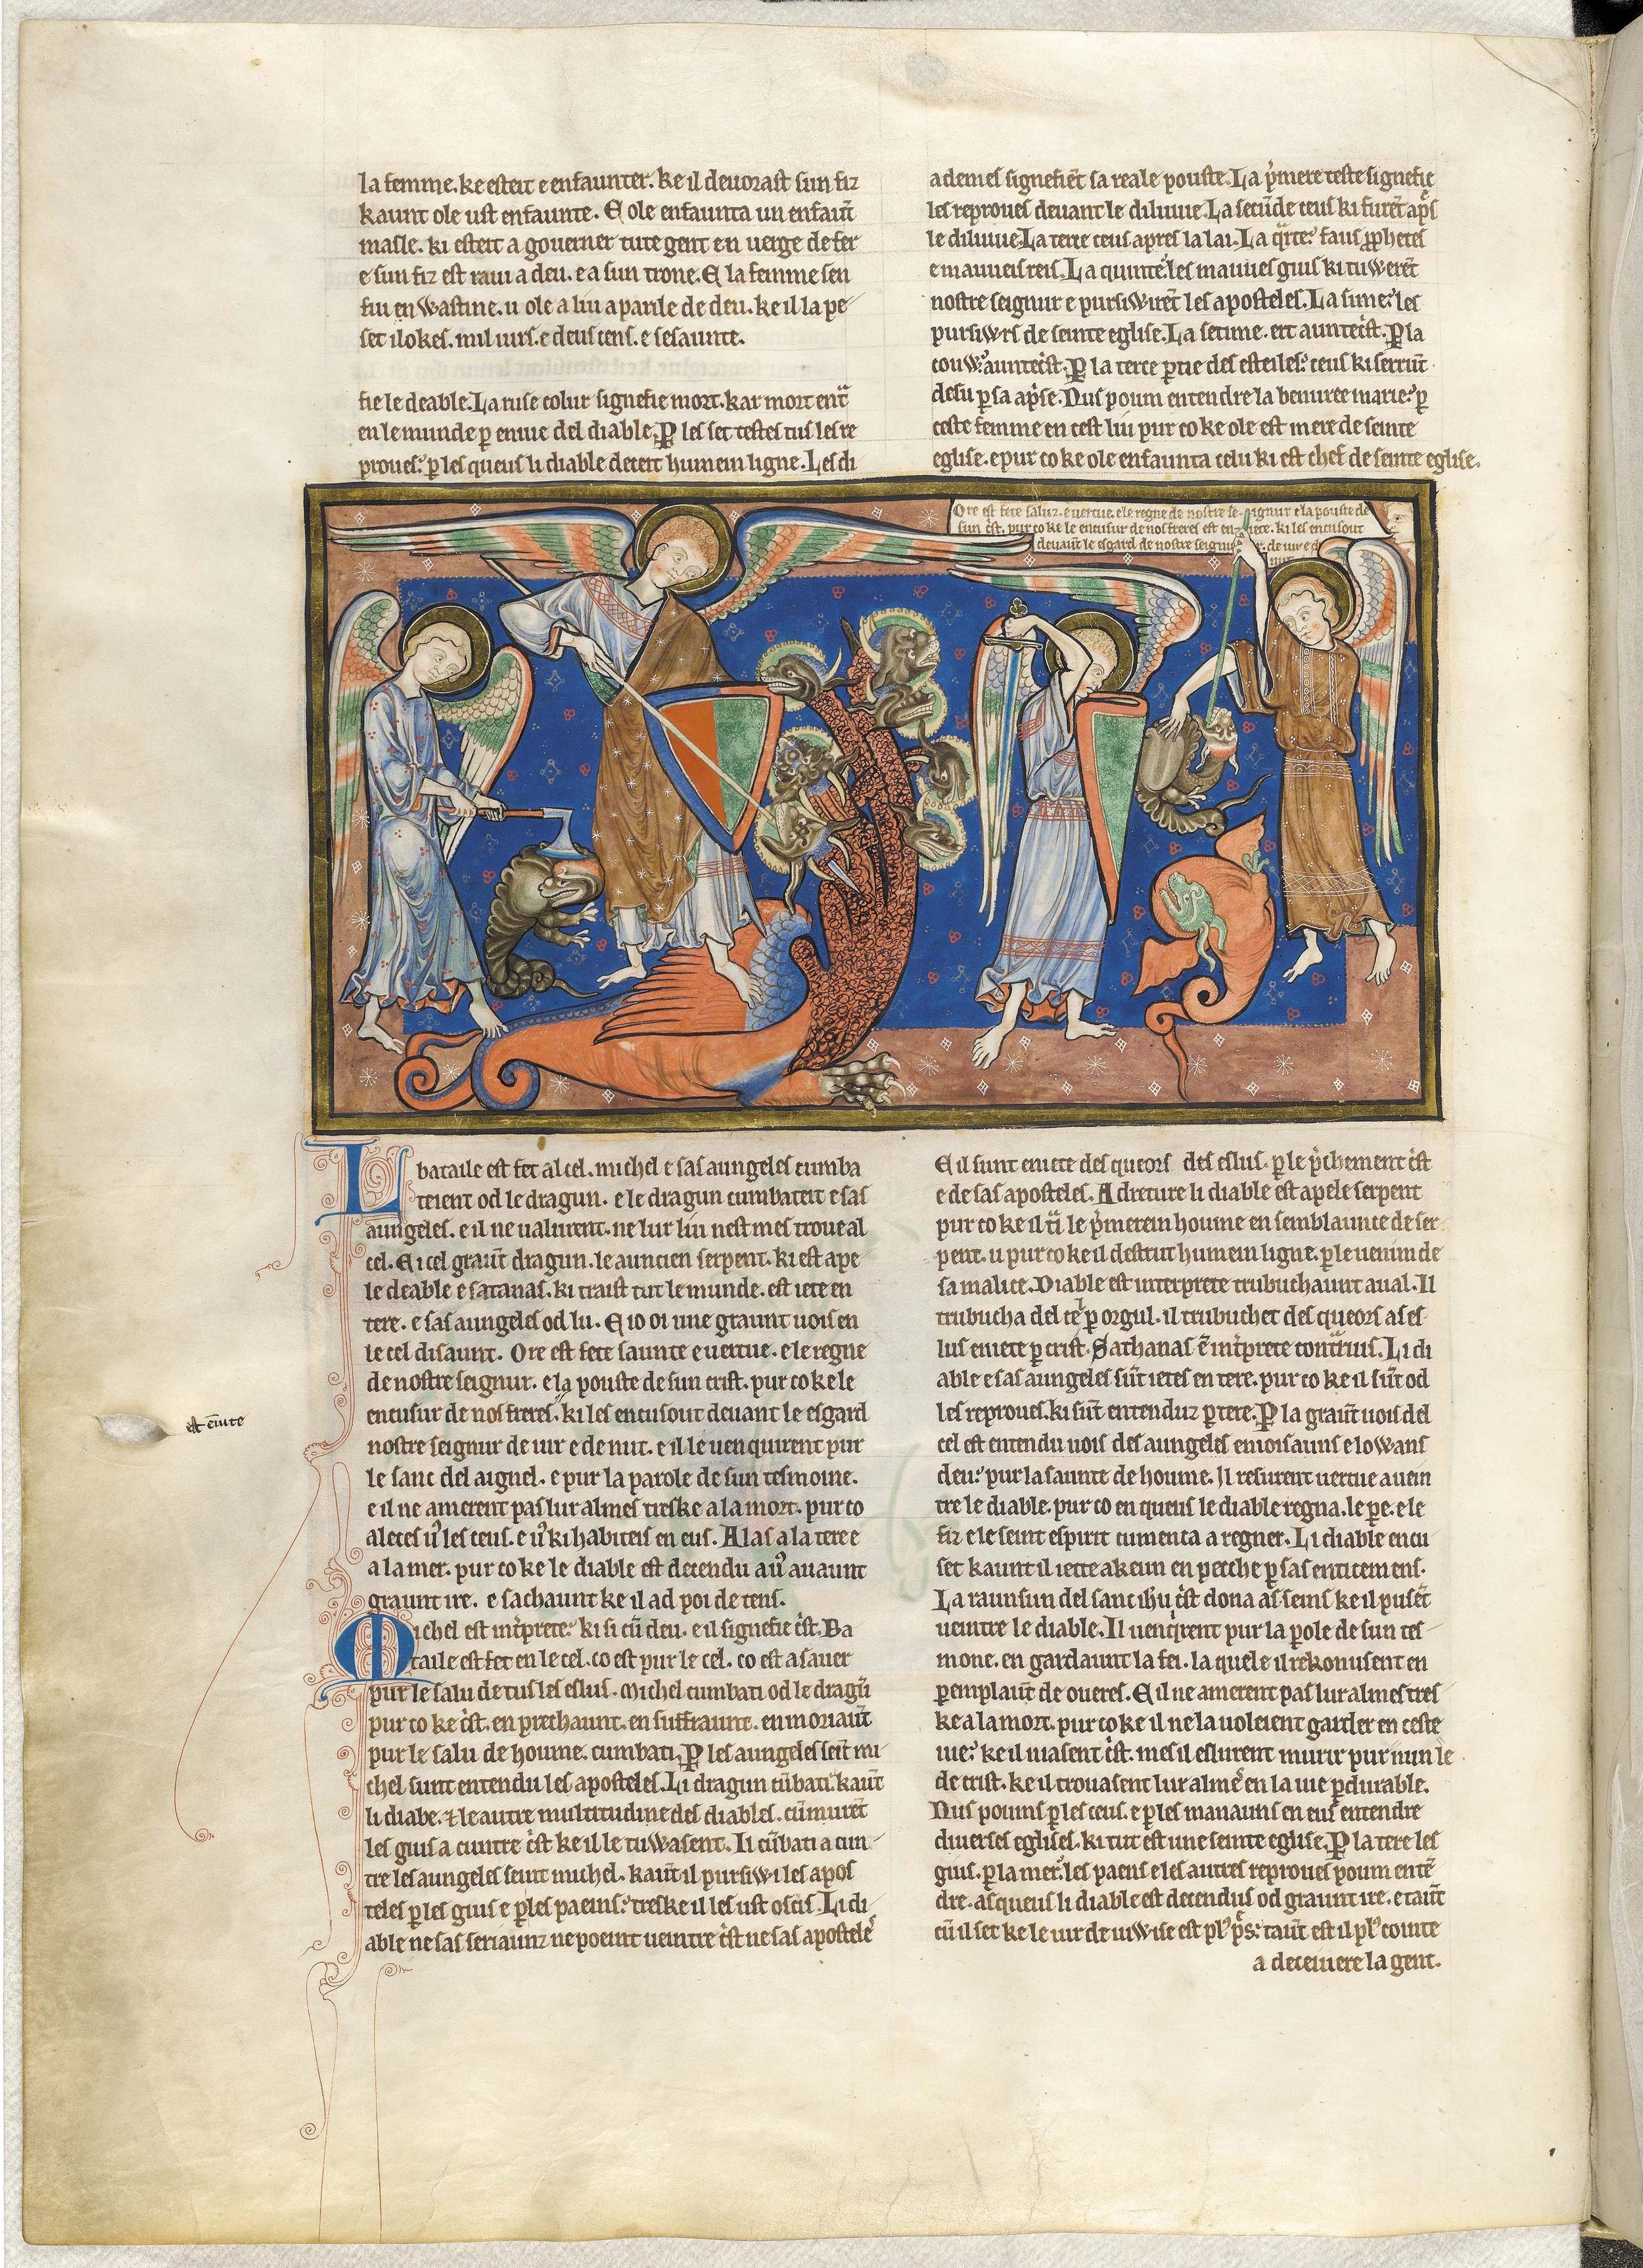 la femme. ke esteit e enfaunter. ke il deuorast sun fiz
kaunt ole ust enfaunte. E ole enfaunta un enfaūt
masle. ki esteit a gouerner tute gent en uerge de fer
e sun fiz est raui a deu. e a sun trone. E la femme sen
fui en Wastine. u ole a liu aparile de deu. ke il la pe
set ilokes. mil iurs. e deus cens. e sesaunte.
fie le deable. La ruse colur signefie mort. kar mort ent͛
en le munde ꝑ enuie del diable. Ꝑ les set testes tus les re
proues. ꝑ les queus li diable deceit humein ligne. Les di
ademes signefiēt sa reale pouste. La p̍mere teste signefie
les reproues deuant le diluuie. La secūde ceus ki furēt ap̄s
le diluuie. La terce ceus apres la lai. La q̍rte. faus ꝓphetes
e mauueis reis. La quinte. les mauues gius ki tuWerēt
nostre seignur e pursiWirēt les aposteles. La sime. les
pursiWrs de seinte eglise. La setime. ert auntec̍st. Ꝑ la
couW. auntec̍st. Ꝑ la terce ꝑtie des esteiles. ceus ki serrūt
desu ꝑ sa ap̍se. Nus poum entendre la benuree marie. ꝑ
ceste femme en cest liu pur co ke ole est mere de seinte
eglise. e pur co ke ole enfaunta celu ki est chef de seinte eglise.
Ore est fete saluz. e uertue. e le regne de nostre seignur e la pouste de
sun c̍st. pur co ke le encusur de nos freres est en iete. ki les encusout
deuaūt le esgard de nostre seignur. de iur e de
nuit
La bataile est fet al cel. michel e sas aungeles cumba
teient od le dragun. e le dragun cumbateit e sas
aungeles. e il ne ualurent. ne lur liu nest mes troue al
cel. E icel graūt dragun. le auncien serpent. ki est ape
le deable e satanas. ki traist tut le munde. est iete en
tere. e sas aungeles od lu. E io oi une graunt uois en
le cel disaunt. Ore est fete saunte e uertue. e le regne
de nostre seignur. e la pouste de sun crist. pur co ke le
encusur de nos freres. ki les encusout deuant le esgard
nostre seignur de iur e de nut. e il le uenquirent pur
le sanc del aignel. e pur la parole de sun tesmoine.
e il ne amerent pas lur almes treske a la mort. pur co
aleces uꝰ les ceus. e uꝰ ki habiteis en eus. Alas a la tere e
a la mer. pur co ke le diable est decendu a uꝰ auaunt
graunt ire. e sachaunt ke il ad poi de tens.
Michel est int̍prete. ki si cū deu. e il signefie c̍st. Ba
taile est fet en le cel. co est pur le cel. co est a sauer
pur le salu de tus les eslus. Michel cumbati od le dragū
pur co ke c̍st. en prechaunt. en suffraunt. en moriaūt
pur le salu de houme. cumbati. Ꝑ les aungeles seīt mi
chel sunt entendu les aposteles. Li dragun cūbati. kaūt
li diabe. ⁊ le autre multitudine des diables. cūmurēt
les gius a cuntre c̍st ke il le tuWasent. Il cūbati a cun
tre les aungeles seint michel. kaūt il pursiWi les apos
teles ꝑ les gius e ꝑ les paeins. treske il les ust oscis. Li di
able ne sas seriaunz ne poeint ueintre c̍st ne sas apostele
est en̄iete
E il sunt eniete des queors des eslus. ꝑ le p̍chement c̍st
e de sas aposteles. A dreture li diable est apele serpent
pur co ke il t͛i le p̍merein houme en semblaunce de ser
pent. u pur co ke il destrut humein ligne. ꝑ le uenim de
sa malice. Diable est interprete trubuchaunt aual. Il
trubucha del cel ꝑ orgul. il trubuchet des queors as es
lus eniete ꝑ crist. Sathanas ē int̍prete cont͛rius. Li di
able e sas aungeles sūt ietes en tere. pur co ke il sūt od
les reproues. ki sūt entenduz ꝑ tere. Ꝑ la graūt uois del
cel est entendu uois des aungeles enioisauns e loWans
deu. pur la saunte de houme. Il resurent uertue a uein
tre le diable. pur co en queus le diable regna. le pe. e le
fiz e le seint espirit cumenca a regner. Li diable encu
set kaunt il iette akeun en pecche ꝑ sas enticemens.
La raunsun del sanc ih̄u c̍st dona as seins ke il pusēt
ueintre le diable. Il uenq̍rent pur la ꝑole de sun tes
mone. en gardaunt la fei. la quele il rekonusent en
ꝑemplaūt de oueres. E il ne amerent pas lur almes tres
ke a la mort. pur co ke il ne la uoleient garder en ceste
uie. ke il niasent c̍st. mes il eslurent murir pur nun le
de crist. ke il trouasent lur alme en la uie ꝑdurable.
Nus poums ꝑ les ceus. e ꝑ les manauns en eus entendre
diuerses eglises. ki tut est une seinte eglise. Ꝑ la tere les
gius. ꝑ la mer. les paens e les autres reproues poum entē
dre. as queus li diable est decendus od graunt ire. e taūt
cū il set ke le iur de iuWise est plꝰ p̍s. taūt est il plꝰ cointe
a deceiuere la gent.